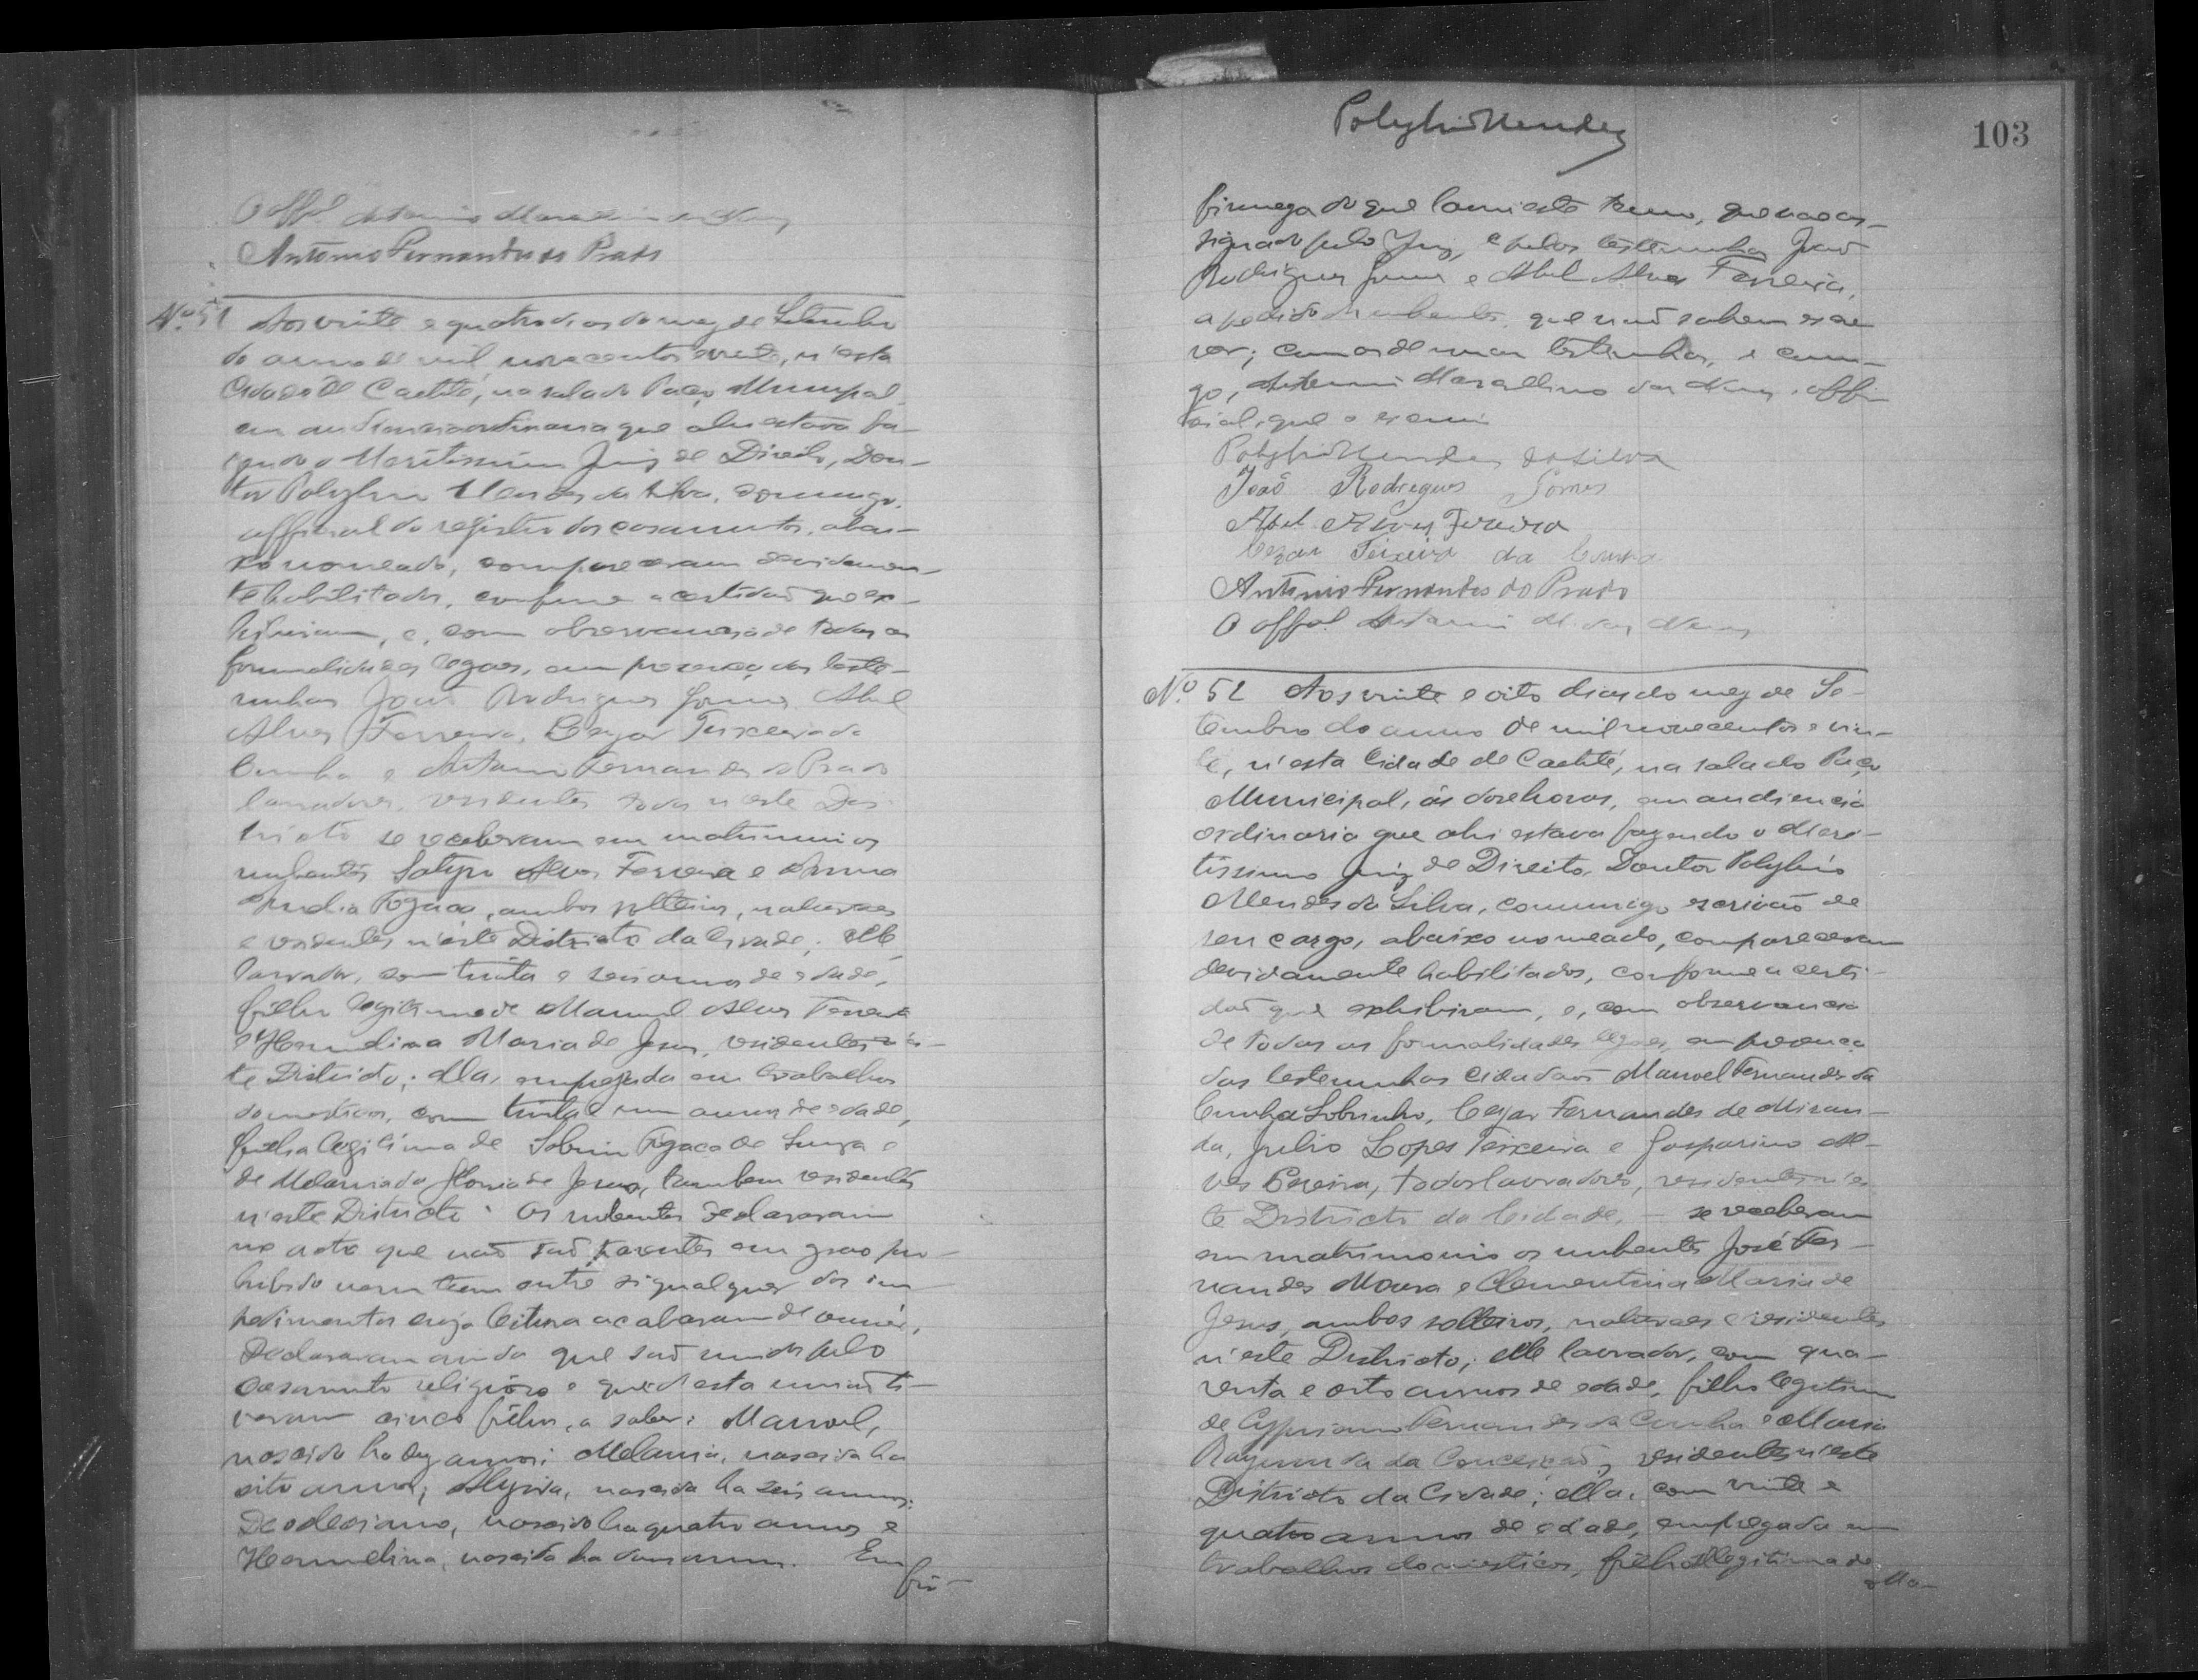 O offal. Antonio Marcellino das Neves
Antonio Fernandes do Prado
Nº 51 Aos vinte e quatro dias do mez de Setembro
do anno de mil novecentos e vinte, n'esta
Cidade de Caetité, na sala do Paço Municipal,
em audiencia ordinaria que ahi estava fa-
zendo o Meritissimo Juiz de Direito, Dou-
tor Polybio Mendes da Silva, commigo,
official do registro dos casamentos, abai-
xo nomeado, compareceram devidamen-
te habilitados, conforme a certidão que ex-
hibiram, e, com observancia de todas as
formalidades legaes, em presença das teste-
munhas João Rodrigues Gomes, Abel
Alves Ferreira, Cezar Teixeira da
Cunha e Antonio Fernandes do Prado
lavradores, residentes todos n'este Dis-
tricto se receberam em matrimonio os
nubentes Satyro Alves Ferreira e Anna
Fogaça, ambos solteiros, naturaes
e residentes n'este Districto da Cidade; elle,
lavrador, com trinta e seis annos de edade,
filho legitimo de Manoel Alves Ferreira
e Hermelina Maria de Jesus, residentes n'es-
te Districto; ella, empregada em trabalhos
domesticos, com trinta e um annos de edade,
filha legitima de Fogaça de Souza e
de Melania de Jesus, tambem residentes
n'este Districto. Os nubentes declararam
no acto que não são parentes em grao pro-
hibido nem tem entre si qualquer dos im-
pedimentos cuja leitura acabaram de ouvir,
Declararam ainda que são unidos pelo
casamento religioso e que d'esta união ti-
veram cinco filhos, a saber: Manoel,
nascido ha dez annos; Melania, nascida ha
oito annos; Alzira, nascida ha seis annos;
Deocleciano, nascido ha quatro annos e
Hermelina, nascida ha dous annos. Em
fir-
Polybio Mendes
103
firmeza do que lavrei este termo, que vae as-
signado pelo Juiz, e pelas testemunhas João
Rodrigues Gomes e Abel Alves Ferreira,
a pedido dos nubentes, que não sabem escre
ver; com as demais testemunhas, e com-
go, Antonio Marcellino das Neves, offi-
cial, que o escrevi
Polybio Mendes da Silva
João Rodrigues Gomes
Abel Alves Ferreira
Cezar Teixeira da Cunha
Antonio Fernandes do Prado
O offal. Antonio M. das Neves
Nº 52 Aos vinte e oito dias do mez de Se-
tembro do anno de mil novecentos e vin-
te, n'esta Cidade de Caetité, na sala do Paço
Municipal, ás doze horas, em audiencia
ordinaria que ahi estava fazendo o Meri-
tissimo Juiz de Direito, Doutor Polybio
Mendes da Silva, commigo escrivão de
seu cargo, abaixo nomeado, compareceram
devidamente habilitados, conforme a certi-
dão que exhibiram, e, com observancia
de todas as formalidades legaes, em presença
das testemunhas cidadãos Manoel Fernandes da
Cunha Sobrinho, Cezar Fernandes de Miran-
da, Julio Lopes Teixeira e Gasparino Al-
ves Pereira, todos lavradores, residentes n'es
te Districto da Cidade, – se receberam
em matrimonio os nubentes José Fer-
nandes Moura e Clementina Maria de
Jesus, ambos solteiros, naturaes e residentes
n'este Districto; elle lavrador, com qua-
renta e oito annos de edade, filho legitimo
de Cypriano Fernandes da Cunha e Maria
Raymunda da Conceição, residentes n'este
Districto da Cidade; ella, com vinte e
quatro annos de edade, empregada em
trabalhos domesticos, filha illegitima de
Ma-